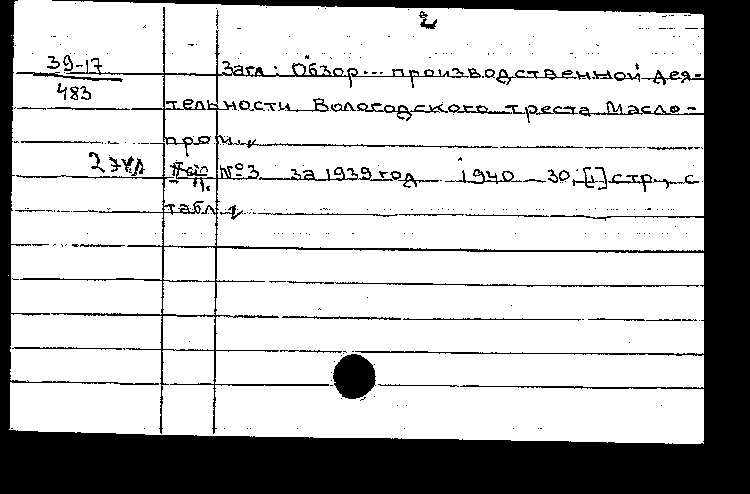 2
39-17 Загл: Обзор... производственной дея-
483 тельности Вологодского треста Масло-
пром.
2 экз №3 за 1939 год 1940 - 30, [1] стр., с
табл